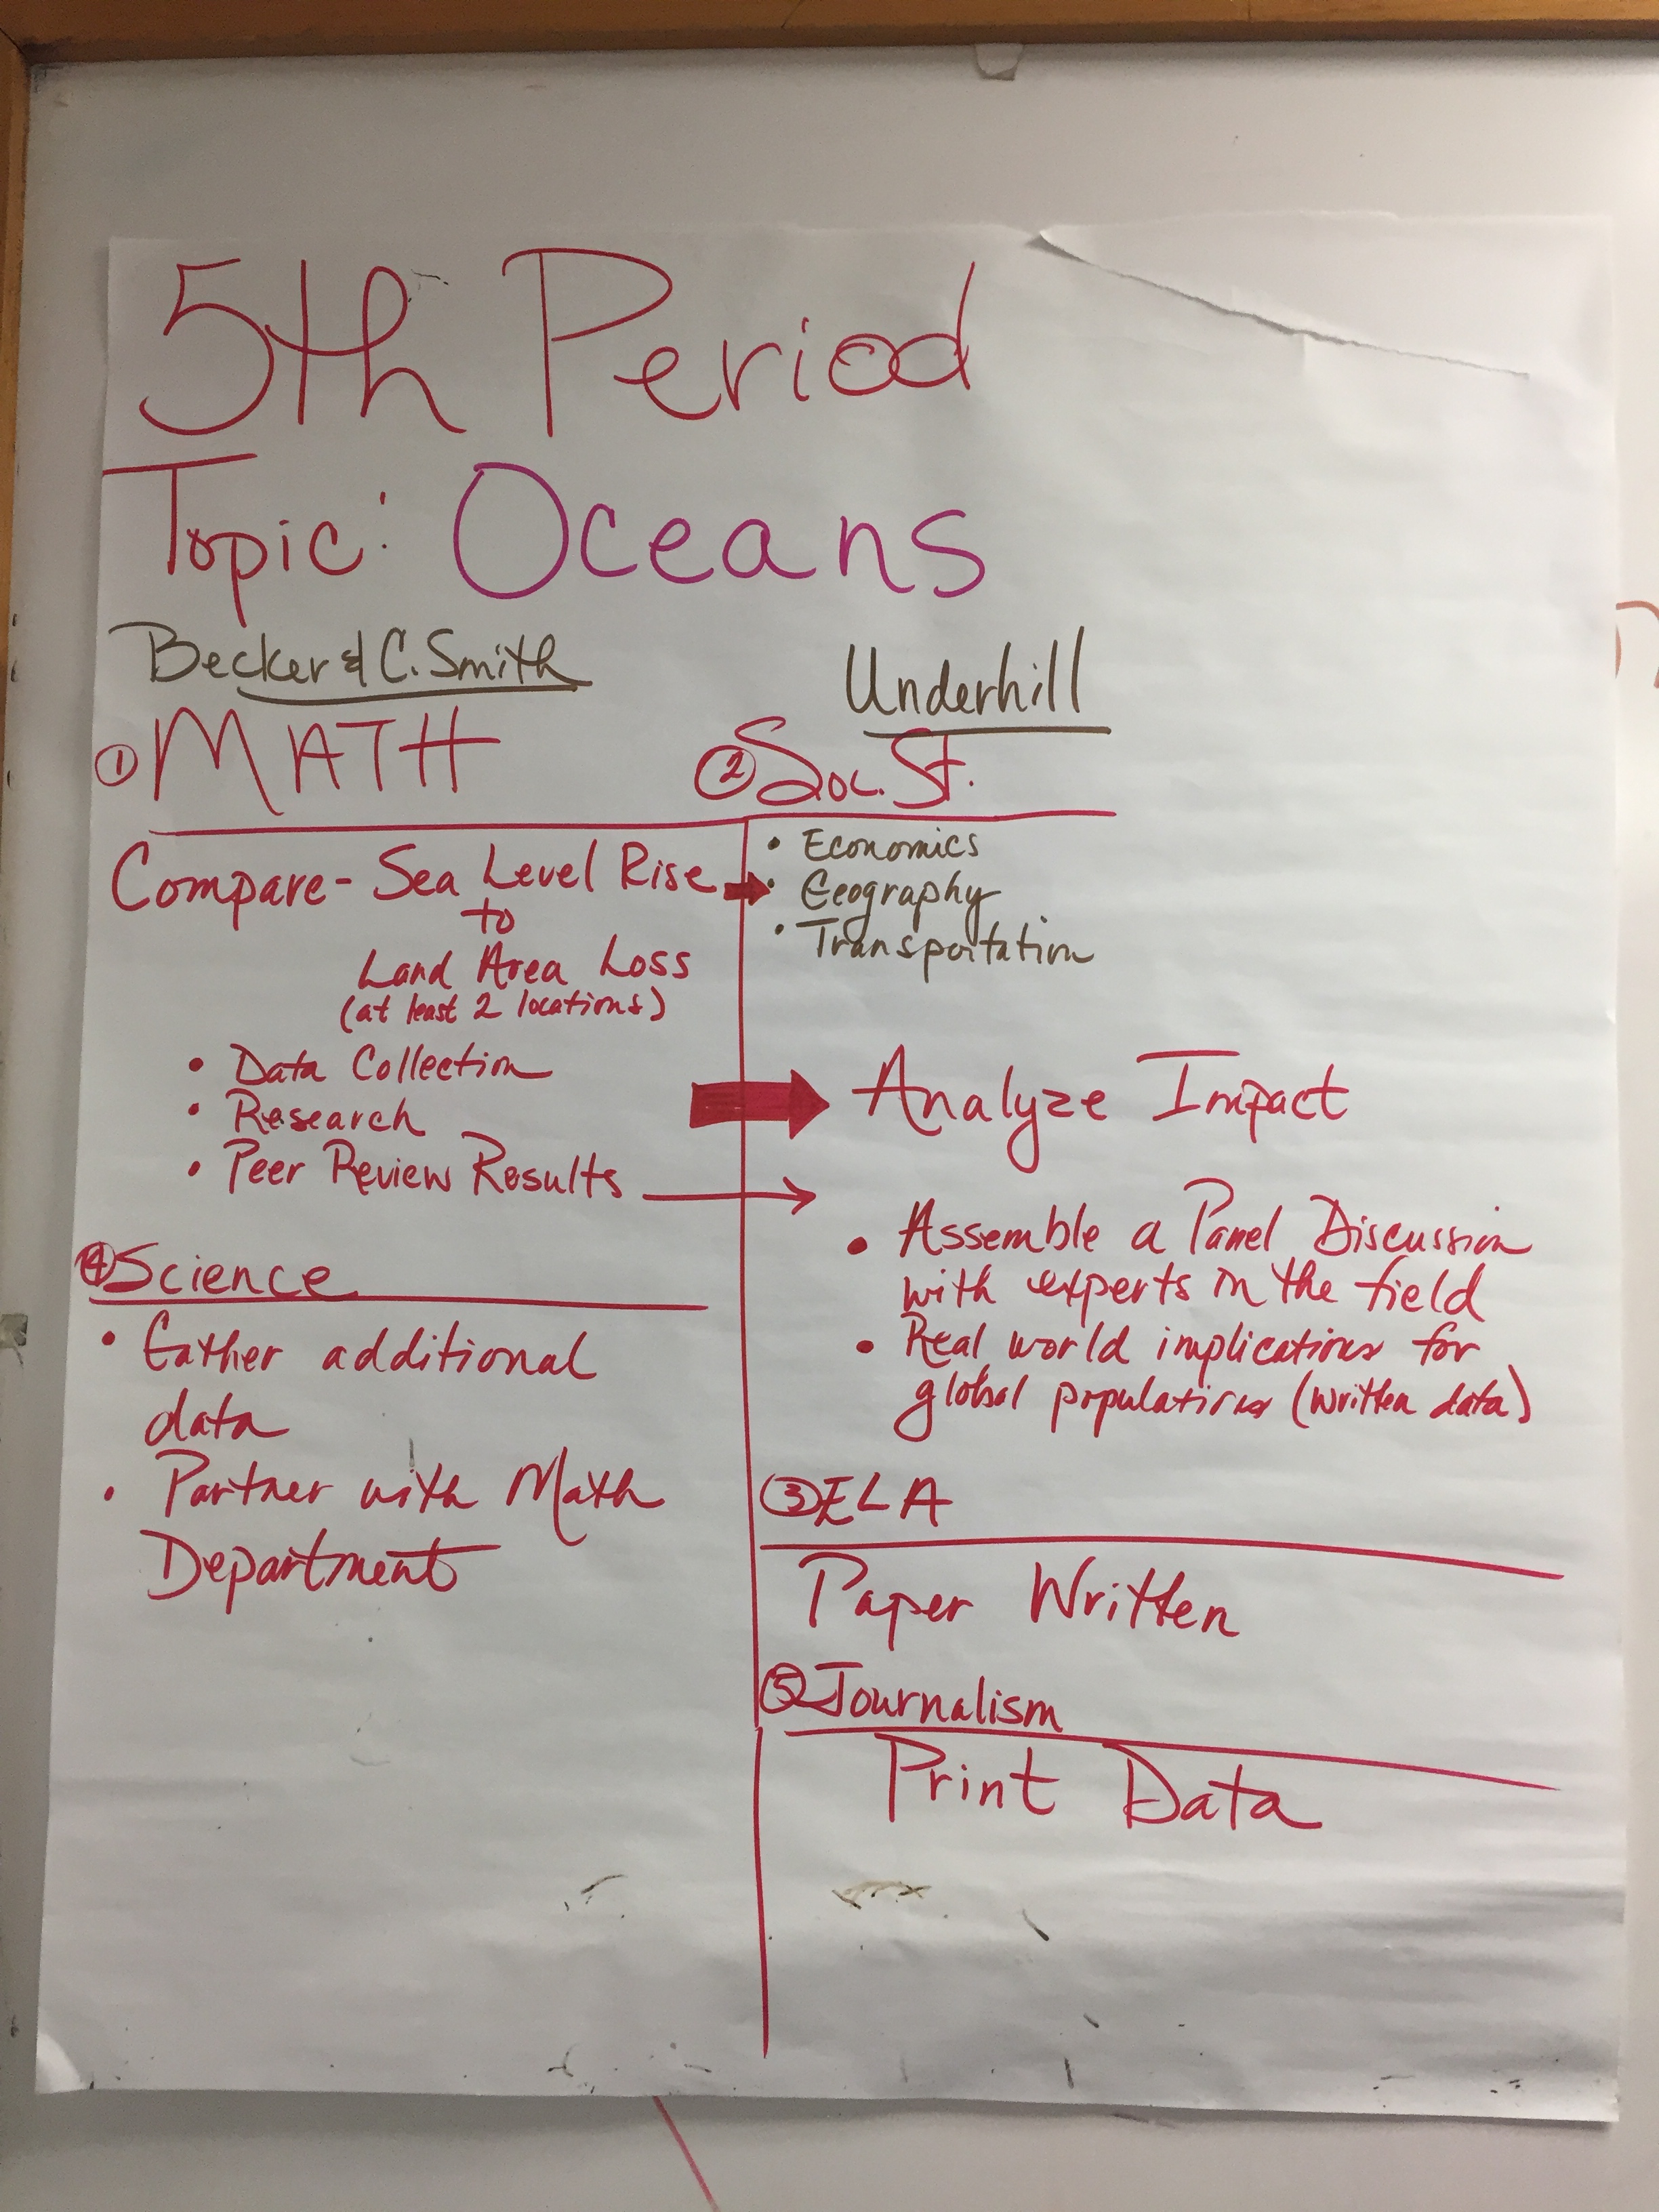 5th Period
Topic: Oceans
Becker & C. Smith
① MATH
Compare - Sea Level Rise
to
Land Area Loss
(at least 2 locations)
• Data Collection
• Research
• Peer Review Results
④ Science
• Gather additional
data
• Partner with Math
Department
Underhill
② Soc. St.
• Economics
• Geography
• Transportation
Analyze Impact
• Assemble a Panel Discussion
with experts in the field
• Real world implications for
global populations (written data)
③ ELA
Paper Written
⑤ Journalism
Print Data